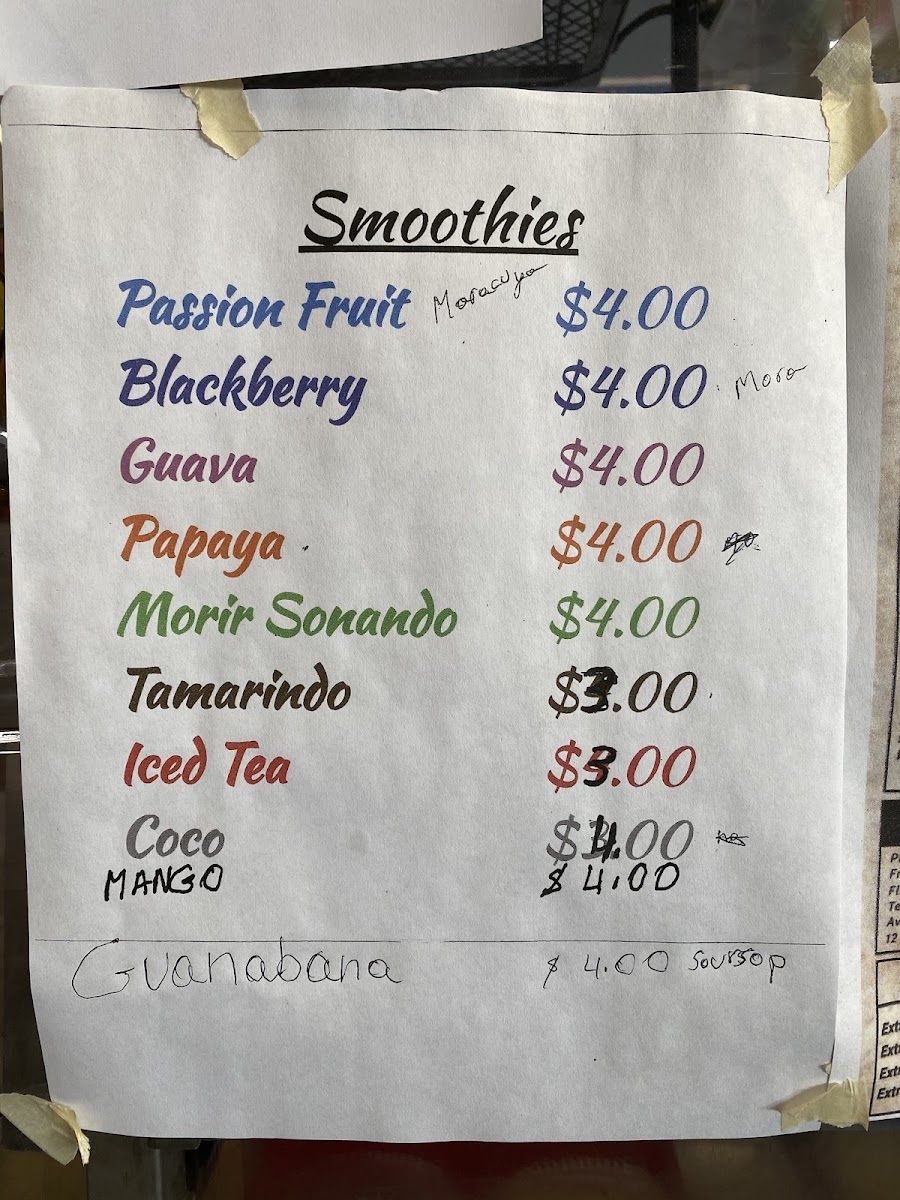 Smoothies
Passion Fruit Moracuya $4.00
Blackberry $4.00 Mora
Guava $4.00
Papaya $4.00
Morir Sonando $4.00
Tamarindo $3.00
Iced Tea $3.00
Coco $4.00
MANGO $4.00
Guanabana $4.00 Soursop
Ext
Ext
Extr
Extr